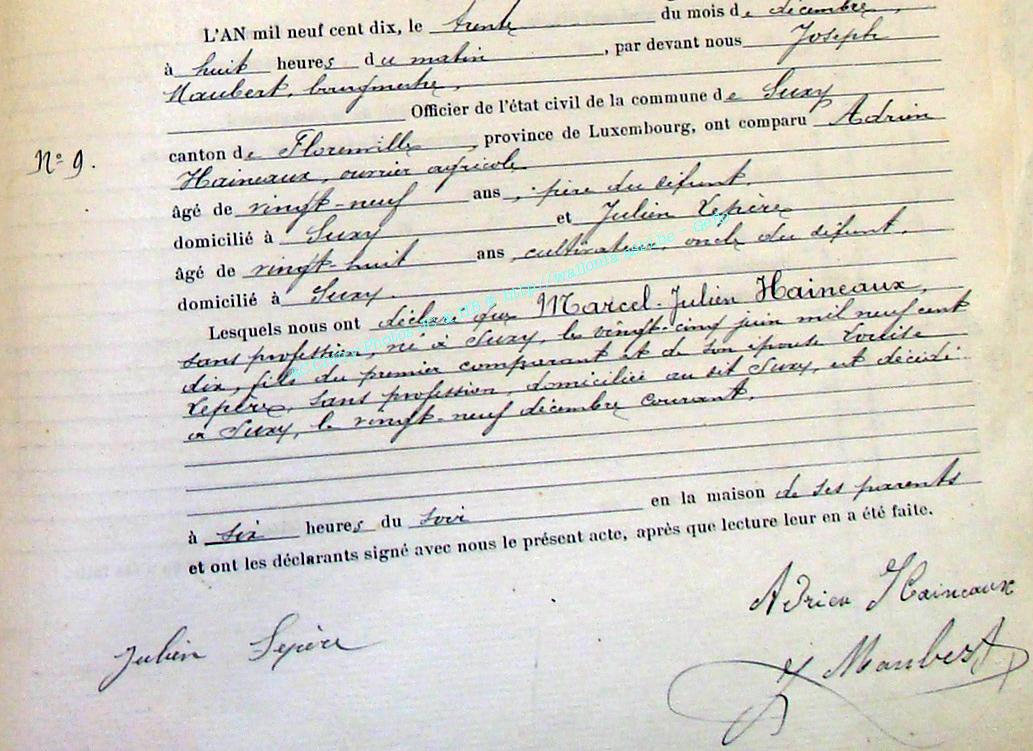 L'AN mil neuf cent dix, le trente du mois de décembre,
à huit heures du matin, par devant nous Joseph
Maubert, bourgmestre,
Officier de l'état civil de la commune de Suxy
canton de Florenville, province de Luxembourg, ont comparu Adrien
Nº 9.
Haineaux, ouvrier agricole
âgé de vingt-neuf ans, père du défunt,
domicilié à Suxy et Julien Lepère
âgé de vingt-huit ans, cultivateur, oncle du défunt,
domicilié à Suxy.
Lesquels nous ont déclaré que Marcel-Julien Haineaux,
sans profession, né à Suxy, le vingt-cinq juin mil neuf cent
dix, fils du premier comparant et de son épouse Louise
Lepère, sans profession, domiciliée au dit Suxy, est décédé
à Suxy, le vingt-neuf décembre courant,
à six heures du soir en la maison de ses parents
et ont les déclarants signé avec nous le présent acte, après que lecture leur en a été faite.
Adrien Haineaux
Julien Lepère
J Maubert